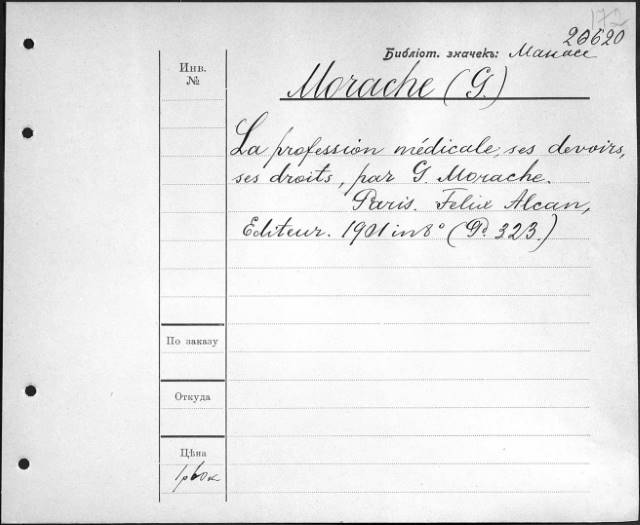 172
20620
Библіот. значекъ: Манасс
Инв.
№
Morache (G.)
La profession médicale, ses devoirs,
ses droits, par G. Morache.
Paris. Felix Alcan,
Editeur. 1901 in 8° (Pd 323.)
По заказу
Откуда
Цѣна
1р 60к